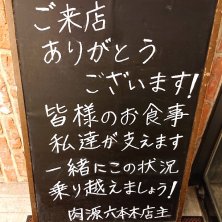 ご来店
ありがとう
ございます!
皆様のお食事
私達が支えます
一緒にこの状況
乗り越えましょう!
肉源六本木店主